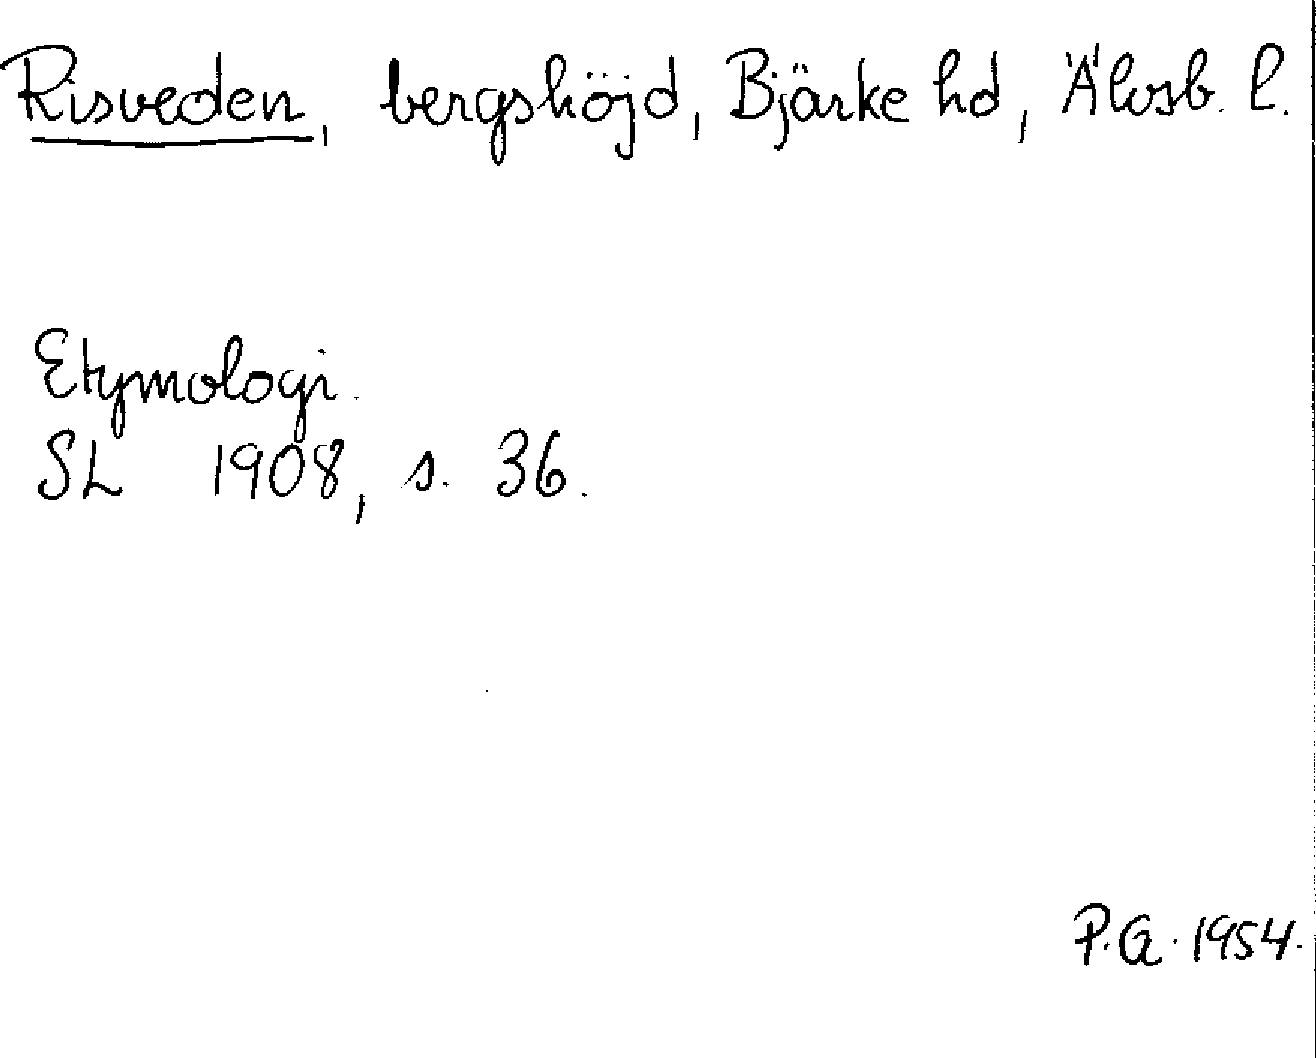 Risveden, bergshöjd, Bjärke hd, Älvsb. l.
Etymologi.
SL 1908, s. 36.
P.G. 1954.